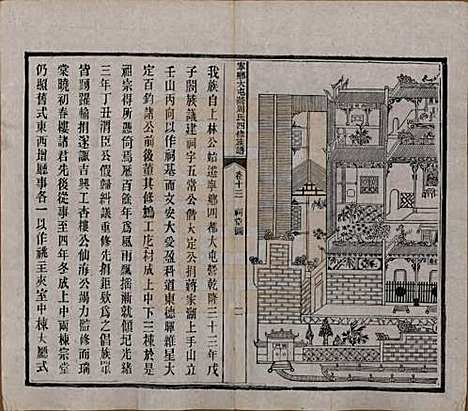 寧鄉大屯營周氏四修族譜
卷十三 祠堂圖
二
我族自上林公始遷寧鄉四都大屯營乾隆三十三年戊
子闔族議建祠宇五常公偕大定公捐蔣家灝上手山立
壬山丙向以作祠基而文安大受盈科道東德輝維星大
定百鈞諸公前後董其修鶴工庀材成上中下三棟於是
祖宗得所倚焉百餘年為風雨飄搖漸就圮光緒
三年丁丑渭臣公假歸糾議重修先捐鉅欵為之倡族
皆踴躍輸捐遂諏吉興工杏樓公仙海公竭力監修而瑞
棠曉初春樓諸君先後從事至四年冬成上中兩棟宗堂
仍照舊式東西增廳事各一以作祧主夾室中棟大廳式